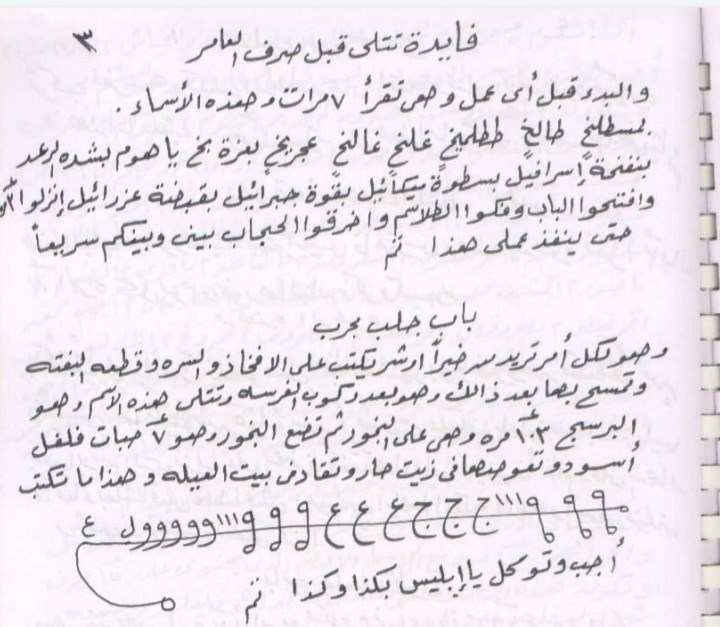 فايدة تتلى قبل صرف العامر ٣
والبدو قبل أى عمل وهى تقرأ ٧ مرات وهذه الاسماء.
لمسطلخ طالخ غلنخ غالنخ بعزة يا هوم بشده الرعد
بنفخة إسرافيل بسطوة ميكائيل بقوة جبرائيل بقبضة عزرائيل إنزلوا
وافتحوا الباب وفكوا الطلاسم واخرقوا الحجاب بينى وبينكم سريعاً
حتى ينفذ عملى هذا تم
باب جلب مجرب
وهو لكل أمر تريد من خيراً ارشر يكتب على الافخاذ والسره وقطعه
وتمسح بها بعد ذالك وهو بعد ركوب الفرسه وتتلى هذه الاسم وهو
البرسيخ مره وهى على البخور ثم تضع البخور وهو ٧ حبات فلفل
إسود وتغوصها فى زيت حار وتقاد فى بيت الفيله وهذا ما تكتب
أجب وتوكل يا إبليس بكذا وكذا تم